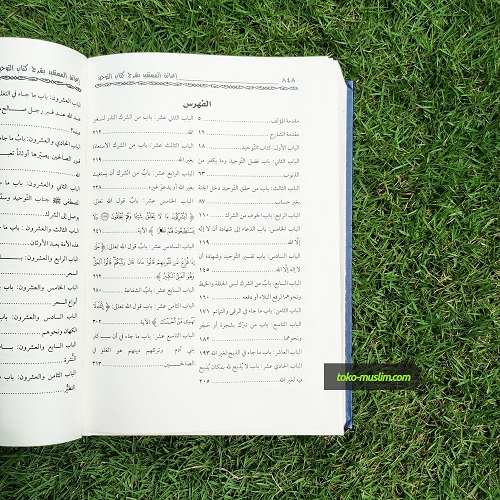 إعانة المستفيد بشرح كتاب التوحيد
٨١٨
الفهرس
مقدمة المؤلف ٥
مقدمة الشارح ١٦
الباب الأول: كتاب التوحيد ١٨
الباب الثاني: باب فضل التوحيد وما يكفر من
الذنوب ٦٣
الباب الثالث: باب من حقق التوحيد دخل الجنة
بغير حساب ٨٧
الباب الرابع: باب الخوف من الشرك ١١٠
الباب الخامس: باب الدعاء إلى شهادة أن لا إله
إلا الله ١١٩
الباب السادس: باب تفسير التوحيد وشهادة أن
لا إله إلا الله ١٤٥
الباب السابع: باب من الشرك لبس الحلقة والخيط
ونحوهما لرفع البلاء أو دفعه ١٦٠
الباب الثامن: باب ما جاء في الرقى والتمائم ١٧١
الباب التاسع: باب من تبرك بشجرة أو حجر
ونحوهما
الباب العاشر: باب ما جاء في الذبح لغير الله ١٩٣
الباب الحادي عشر: باب لا يذبح لله بمكان يُذبح
فيه لغير الله ٢٠٥
الباب الثاني عشر: باب من الشرك النذر لغير
الله ٢١٢
الباب الثالث عشر: باب من الشرك الاستعاذة
بغير الله ٢١٩
الباب الرابع عشر: باب من الشرك أن يستغيث
بغير الله أو يدعو غيره ٢٢٨
الباب الخامس عشر: باب قول الله تعالى:
﴿أَيُشْرِكُونَ مَا لَا يَخْلُقُ شَيْئًا وَهُمْ يُخْلَقُونَ وَلَا
الآية ٢٤١
الباب السادس عشر: باب قول الله تعالى: ﴿حَتَّى
إِذَا فُزِّعَ عَن قُلُوبِهِمْ قَالُوا مَاذَا قَالَ رَبُّكُمْ قَالُوا الْحَقَّ
وَهُوَ الْعَلِيُّ الْكَبِيرُ﴾
الباب السابع عشر: باب الشفاعة ٢٨٠
الباب الثامن عشر: باب قول الله تعالى: ﴿إِنَّكَ لَا
تَهْدِي مَنْ أَحْبَبْتَ﴾ الآية ٣٠٢
الباب التاسع عشر: باب ما جاء أن سبب كفر
بني آدم وتركهم دينهم هو الغلو في
الصالحين ٣١٣
الباب العشرون: باب ما جاء في التغليظ
الباب الحادي والعشرون: باب ما جاء
قبور الصالحين يصيّرها أوثاناً
الباب الثاني والعشرون: باب ما
المصطفى ﷺ جناب التوحيد
يوصل إلى الشرك
الباب الثالث والعشرون: باب ما
هذه الأمة يعبد الأوثان
الباب الرابع والعشرون:
السحر
الباب الخامس والعشرون:
أنواع السحر
الباب السادس والعشرون: باب ما
الكهان ونحوهم
الباب السابع والعشرون:
النشرة
الباب الثامن والعشرون: باب ما
التطير
toko-muslim.com